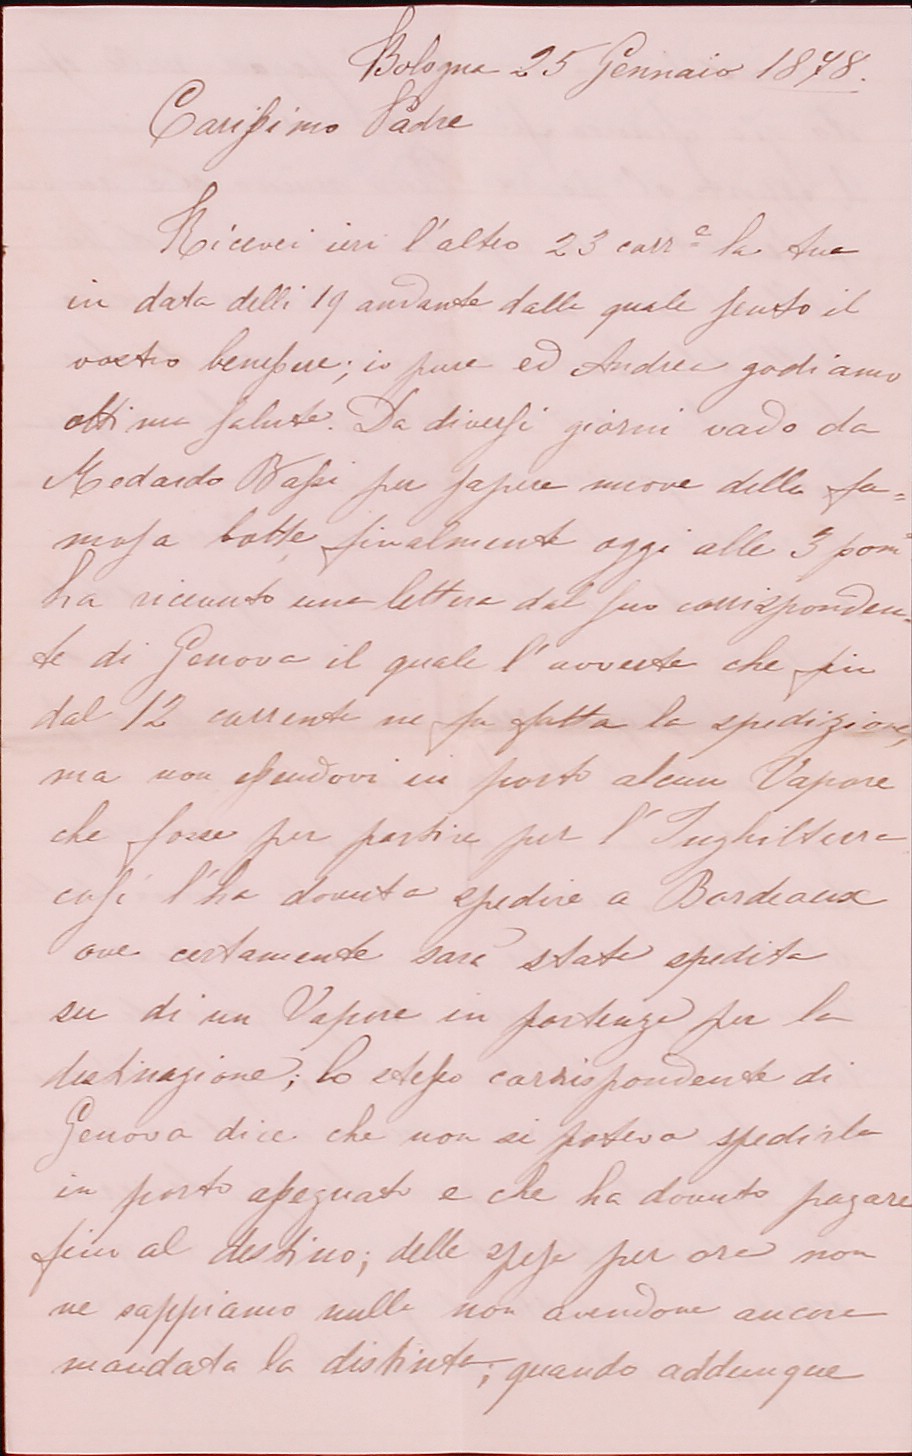 Bologna 25 Gennaio 1878.
Carissimo Padre
Ricevei ieri l'altro 23 corr.e la tua
in data delli 19 andante dalla quale sento il
vostro benessere; io pure ed Andrea godiamo
ottima salute. Da diversi giorni vado da
Medardo Bassi per sapere nuove della fa=
mosa botte, finalmente oggi alle 3 pom
ha ricevuto una lettera dal suo corrisponden=
te di Genova il quale l'avverte che fin
dal 12 corrente ne fu fatta la spedizione,
ma non essendovi in porto alcun Vapore
che fosse per partire per l'Inghilterra
così l'ha dovuta spedire a Bordeaux
ove certamente sarà stata spedita
su di un Vapore in partenza per la
destinazione; lo stesso corrispondente di
Genova dice che non si poteva spedirla
in porto assegnato e che ha dovuto pagare
fino al destino; delle spese per ora non
ne sappiamo nulla non avendone ancora
mandata la distinta; quando addunque